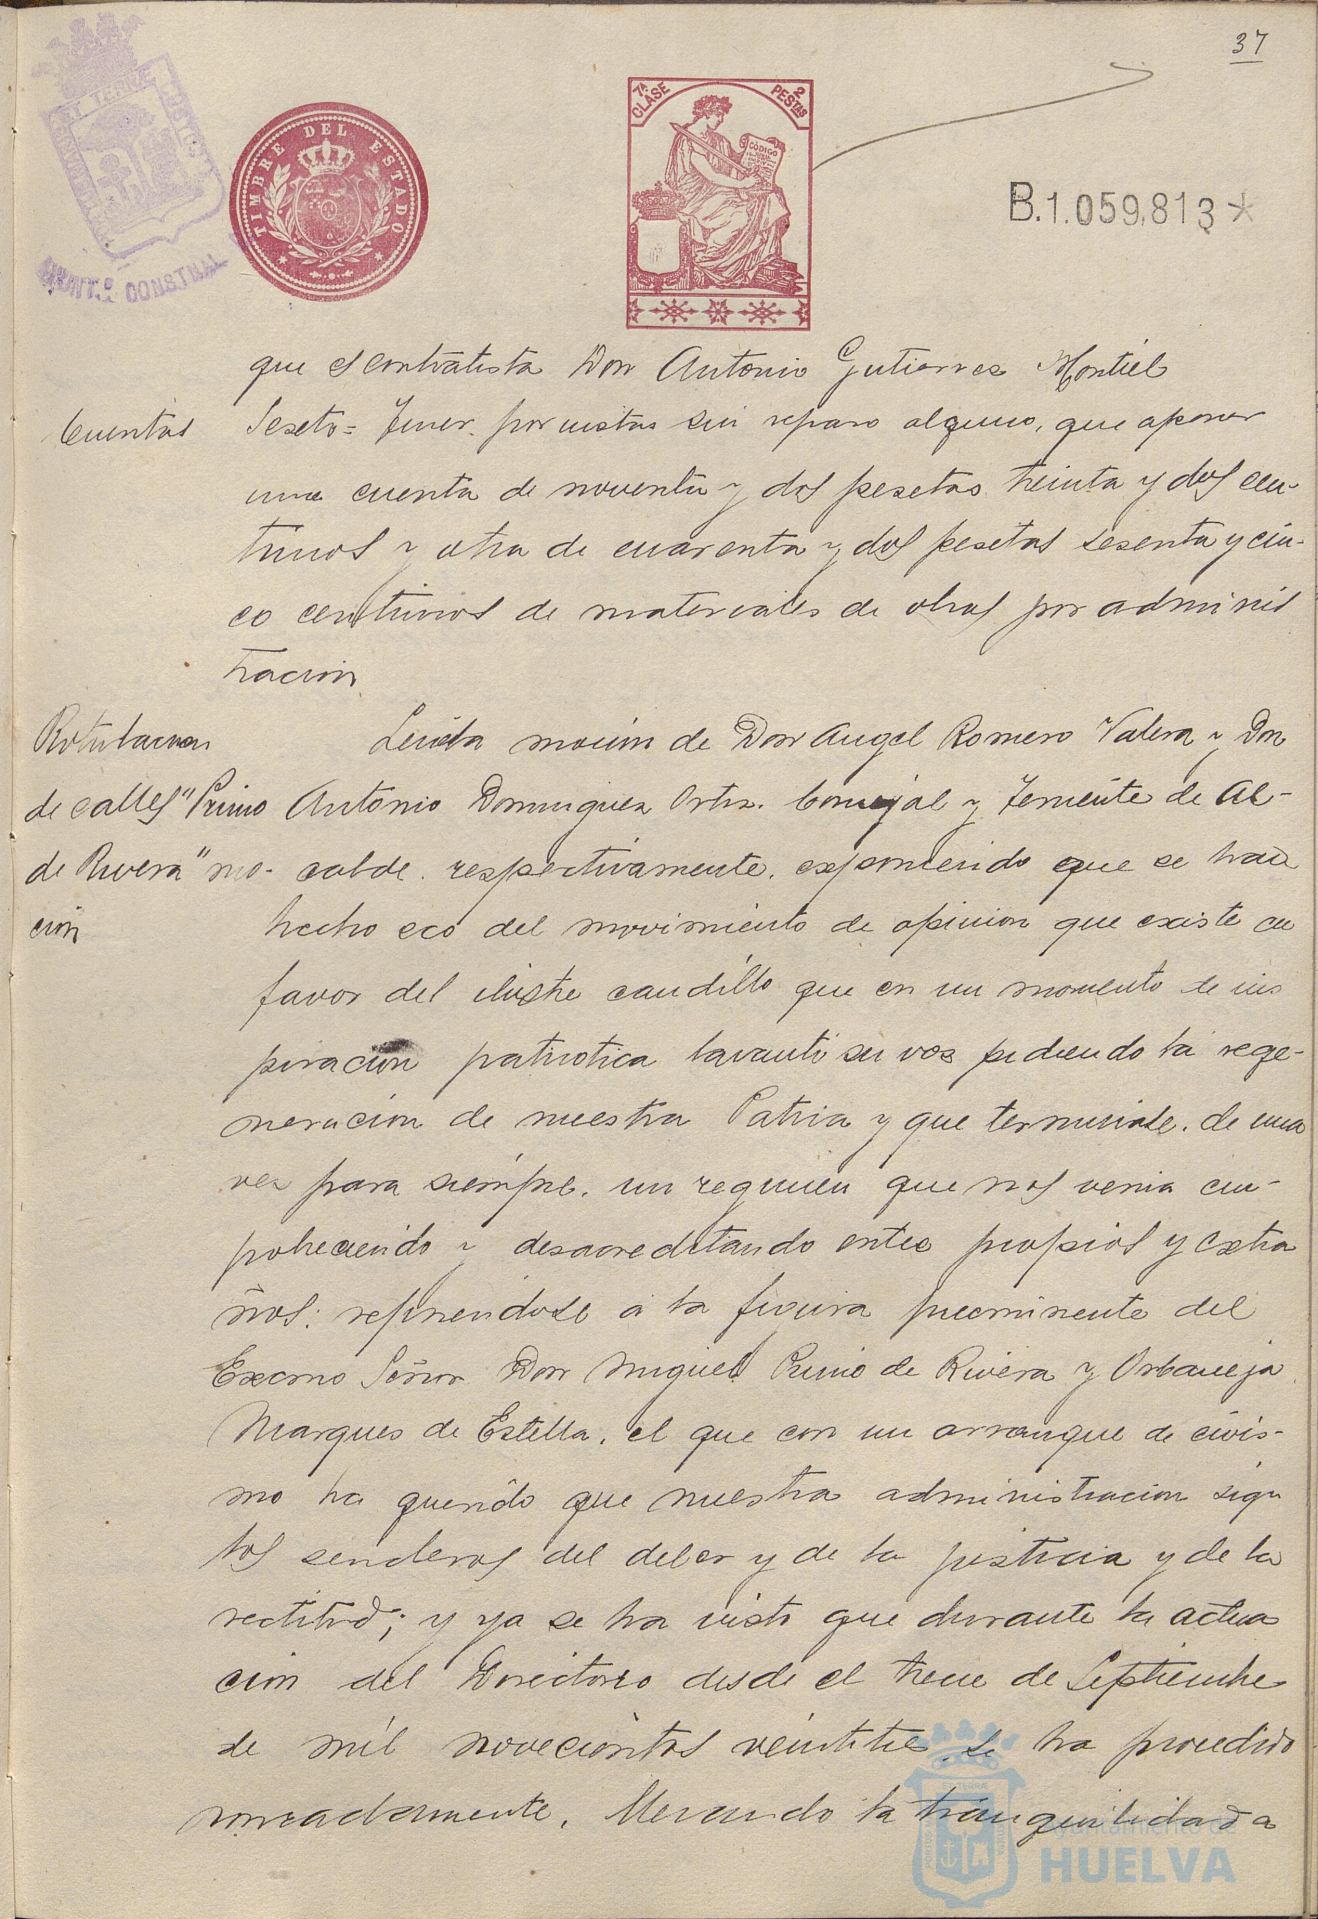 37
TIMBRE DEL ESTADO
7ª CLASE
2 PESTAS
CÓDIGO
B.1.059,813*
AYUNT.º CONSTNAL
que el contratista Don Antonio Gutierrez Montiel
Cuentas
Sexto = Tener por vistas sin reparo alguno, que aponer
una cuenta de noventa y dos pesetas treinta y dos cen-
timos y otra de cuarenta y dos pesetas sesenta y cin-
co centimos de materiales de obras por adminis
tracion
Rotulacion
de calles "Primo
de Rivera" mo-
cion
Leida mocion de Don Angel Romero Valera y Don
Antonio Dominguez Ortiz. Concejal y Teniente de Al-
calde. respectivamente. exponiendo que se han
hecho eco del movimiento de opinion que existe en
favor del ilustre caudillo que en un momento de ins
piracion patriotica lavanto su voz pidiendo la rege-
neracion de nuestra Patria y que terminase. de una
vez para siempre. un regimen que nos venia em-
pobreciendo y desacreditando entre propios y extra
ños: refiriendose a la figura preeminente del
Excmo Señor Don Miguel Primo de Rivera y Orbaneja
Marques de Estella. el que con un arranque de civis-
mo ha querido que nuestra administracion siga
los senderos del deber y de la justicia y de la
rectitud; y ya se ha visto que durante la actua
cion del Directorio desde el trece de Septiembre
de mil novecientos veintitres se ha procedido
honradamente, llevando la tranquilidad a
Ayuntamiento de
HUELVA